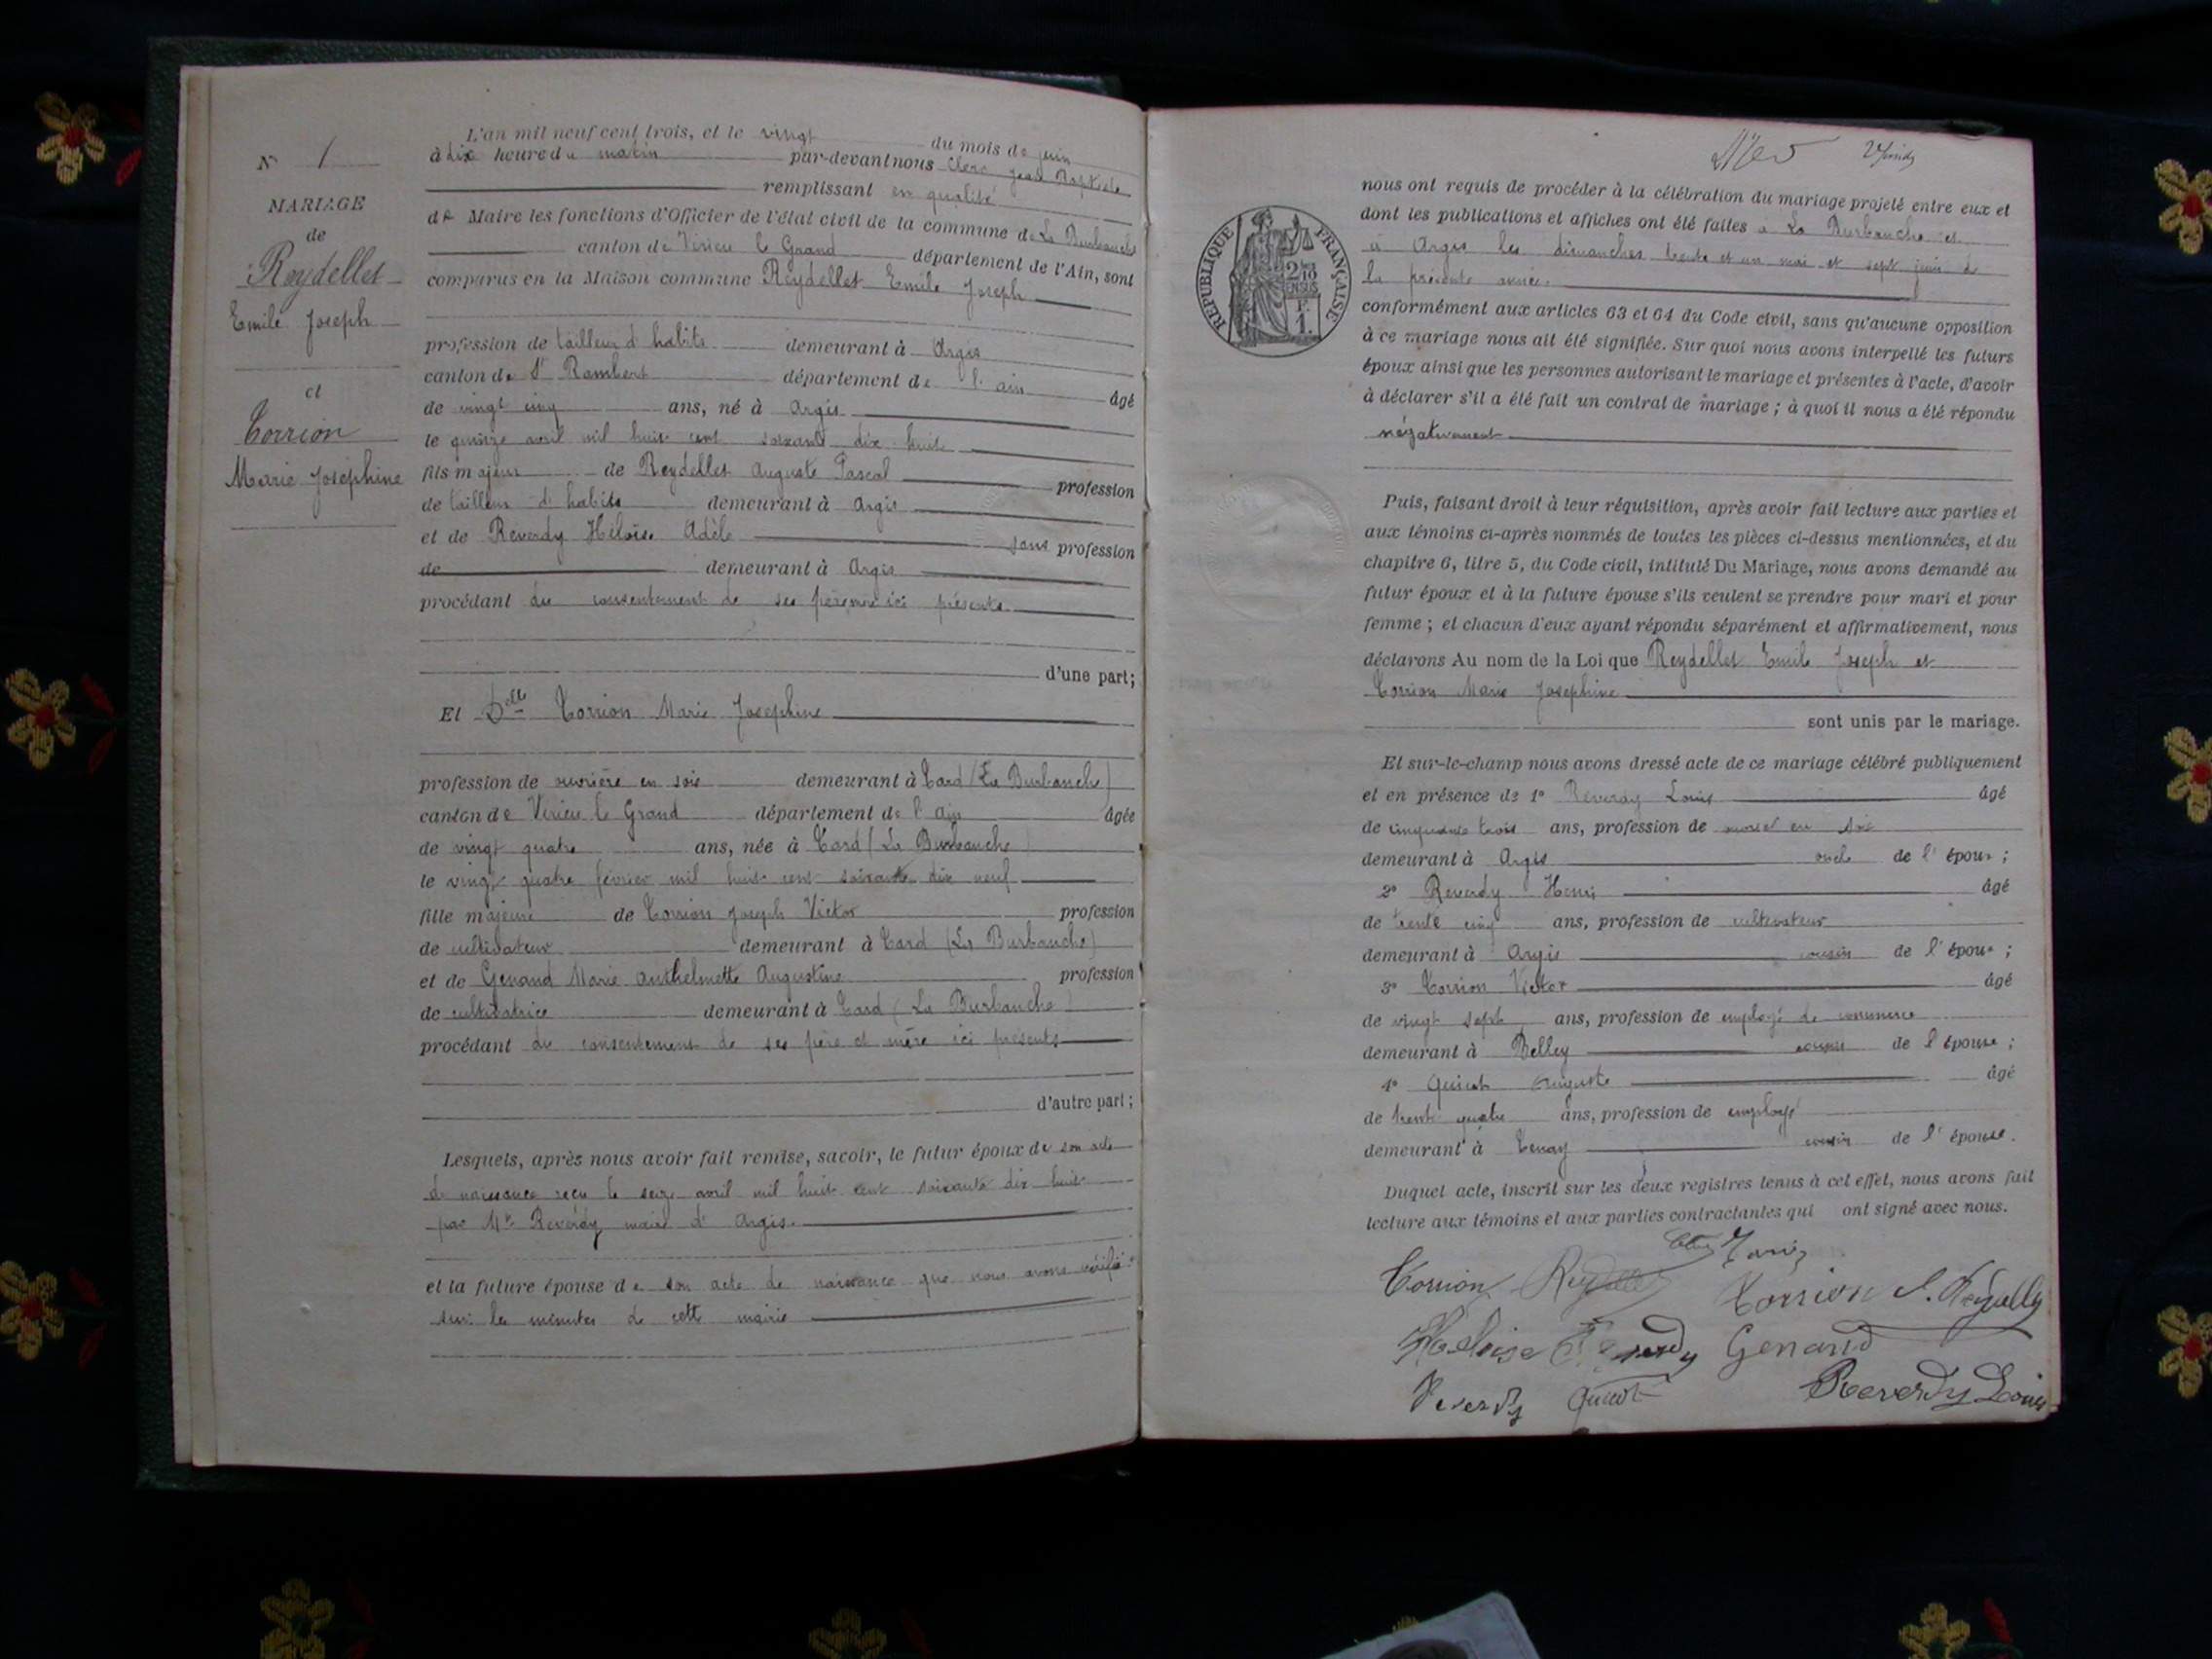 N° 1
MARIAGE
de
Reydellet
Emile Joseph
et
Corrion
Marie Joséphine
L'an mil neuf cent trois, et le vingt du mois de juin
à dix heure du matin par-devant nous Clerc Jean Baptiste
remplissant en qualité
de Maire les fonctions d'Officier de l'état civil de la commune de La Burbanche
canton de Virieu le Grand département de l'Ain, sont
comparus en la Maison commune Reydellet Emile Joseph
profession de tailleur d'habits demeurant à Argis
canton de St Rambert département de l'ain âgé
de vingt cinq ans, né à Argis
le quinze avril mil huit cent soixante dix huit
fils majeur de Reydellet Auguste Pascal profession
de tailleur d'habits demeurant à Argis
et de Reverdy Héloïse Adèle sans profession
de demeurant à Argis
procédant du consentement de ses père mère ici présents
d'une part;
Et Delle Corrion Marie Josephine
profession de ouvrière en soie demeurant à Card (La Burbanche)
canton de Virieu le Grand département de l'Ain âgée
de vingt quatre ans, née à Card (La Burbanche)
le vingt quatre février mil huit cent soixante dix neuf
fille majeure de Corrion Joseph Victor profession
de cultivateur demeurant à Card (La Burbanche)
et de Genand Marie Anthelmette Augustine profession
de cultivatrice demeurant à Card (La Burbanche)
procédant du consentement de ses père et mère ici présents
d'autre part;
Lesquels, après nous avoir fait remise, savoir, le futur époux de son acte
de naissance reçu le seize avril mil huit cent soixante dix huit
par Mr Reverdy maire d'Argis.
et la future épouse de son acte de naissance que nous avons vérifié
sur les minutes de cette mairie
nous ont requis de procéder à la célébration du mariage projeté entre eux et
dont les publications et affiches ont été faites à La Burbanche et
à Argis les dimanches trente et un mai et sept juin de
la présente année.
RÉPUBLIQUE FRANÇAISE
conformément aux articles 63 et 64 du Code civil, sans qu'aucune opposition
à ce mariage nous ait été signifiée. Sur quoi nous avons interpellé les futurs
époux ainsi que les personnes autorisant le mariage et présentes à l'acte, d'avoir
à déclarer s'il a été fait un contrat de mariage; à quoi il nous a été répondu
négativement
Puis, faisant droit à leur réquisition, après avoir fait lecture aux parties et
aux témoins ci-après nommés de toutes les pièces ci-dessus mentionnées, et du
chapitre 6, titre 5, du Code civil, intitulé Du Mariage, nous avons demandé au
futur époux et à la future épouse s'ils veulent se prendre pour mari et pour
femme; et chacun d'eux ayant répondu séparément et affirmativement, nous
déclarons Au nom de la Loi que Reydellet Emile Joseph et
Corrion Marie Josephine
sont unis par le mariage.
Et sur-le-champ nous avons dressé acte de ce mariage célébré publiquement
et en présence de 1° Reverdy Louis âgé
de cinquante trois ans, profession de ouvrier en soie
demeurant à Argis oncle de l'époux;
2° Reverdy Henri âgé
de trente cinq ans, profession de cultivateur
demeurant à Argis cousin de l'époux;
3° Corrion Victor âgé
de vingt sept ans, profession de employé de commerce
demeurant à Belley cousin de l'épouse;
4° Quicot Auguste âgé
de trente quatre ans, profession de employé
demeurant à Tenay cousin de l'épouse.
Duquel acte, inscrit sur les deux registres tenus à cet effet, nous avons fait
lecture aux témoins et aux parties contractantes qui ont signé avec nous.
Corrion Reydellet Corrion
Héloise Reverdy Genand
Reverdy Quicot Reverdy Louis